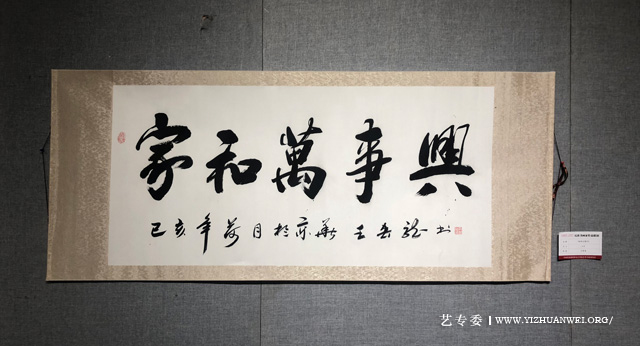 家和萬事興
己亥年荷月於京華 王岳龍书
艺专委 | WWW.YIZHUANWEI.ORG/